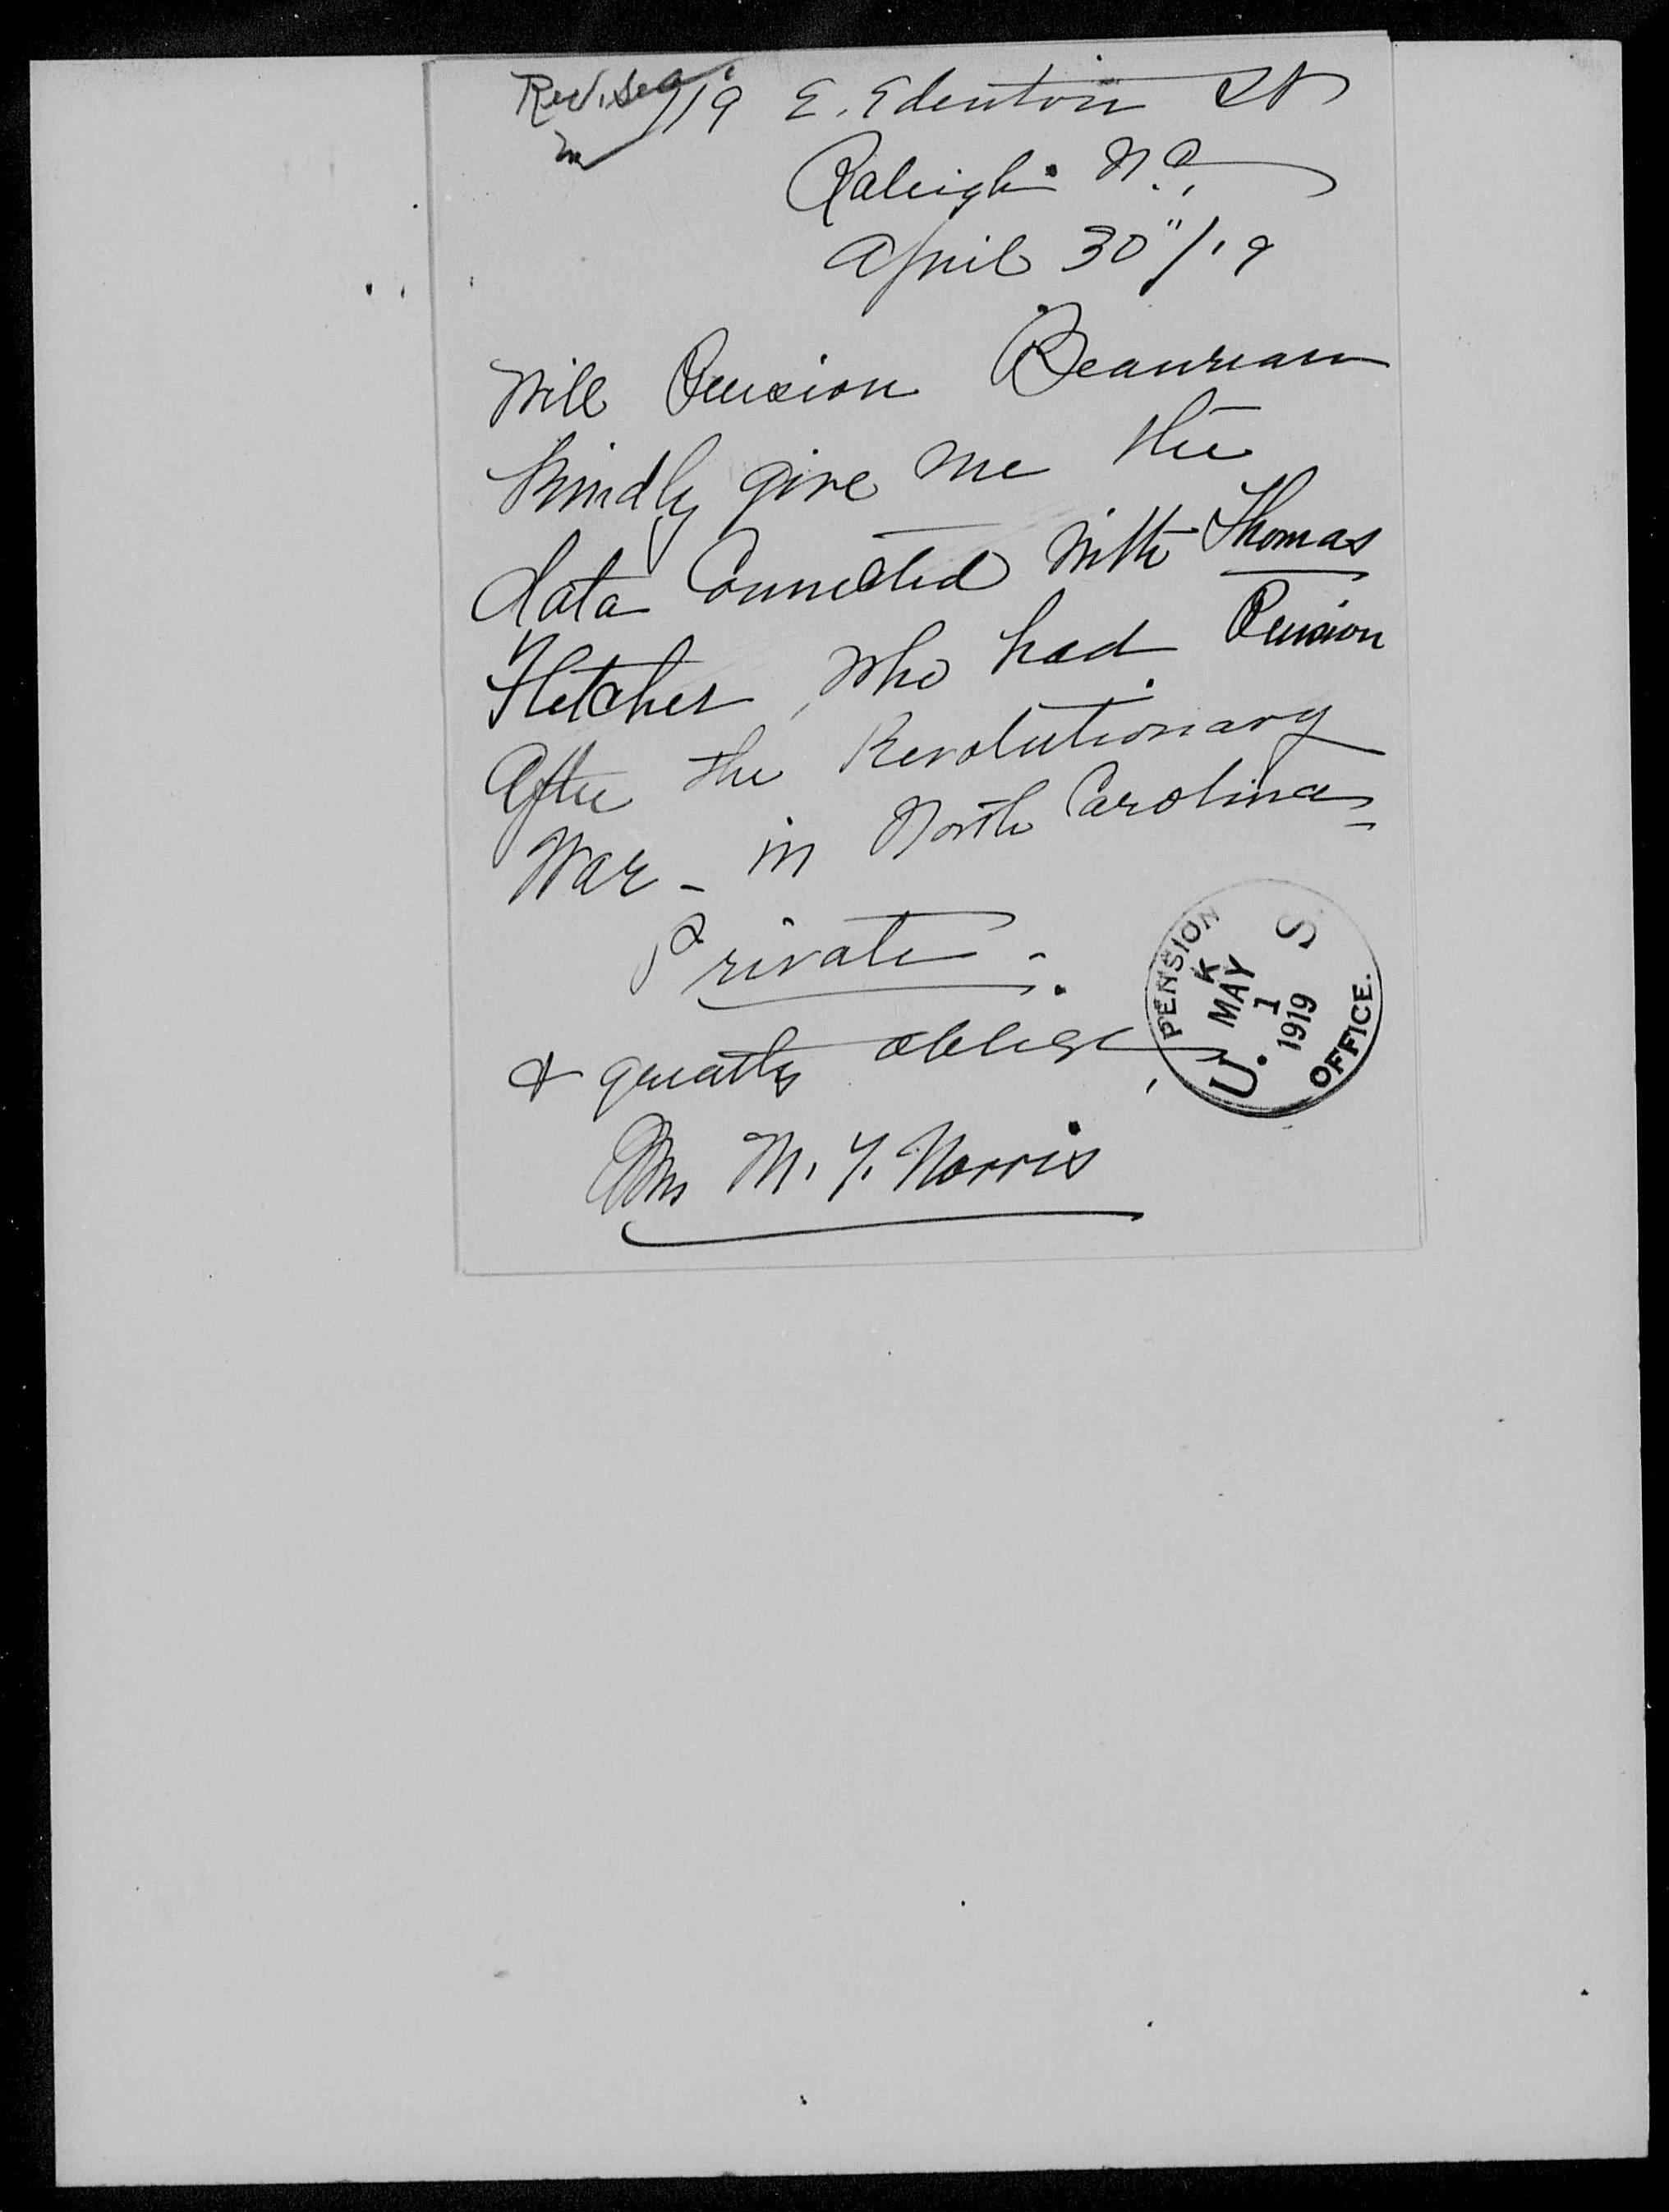 Rev. Sec
119 E. Edenton St
Raleigh N.C.,
April 30"/19
Will Pension Beaureau
kindly give me the
data Connected with Thomas
Fletcher, who had Pension
After the Revolutionary
War - in North Carolina -
Private -.
& greatly oblige,
Mrs M. Y. Norris
U. S. PENSION OFFICE.
K
MAY
1
1919